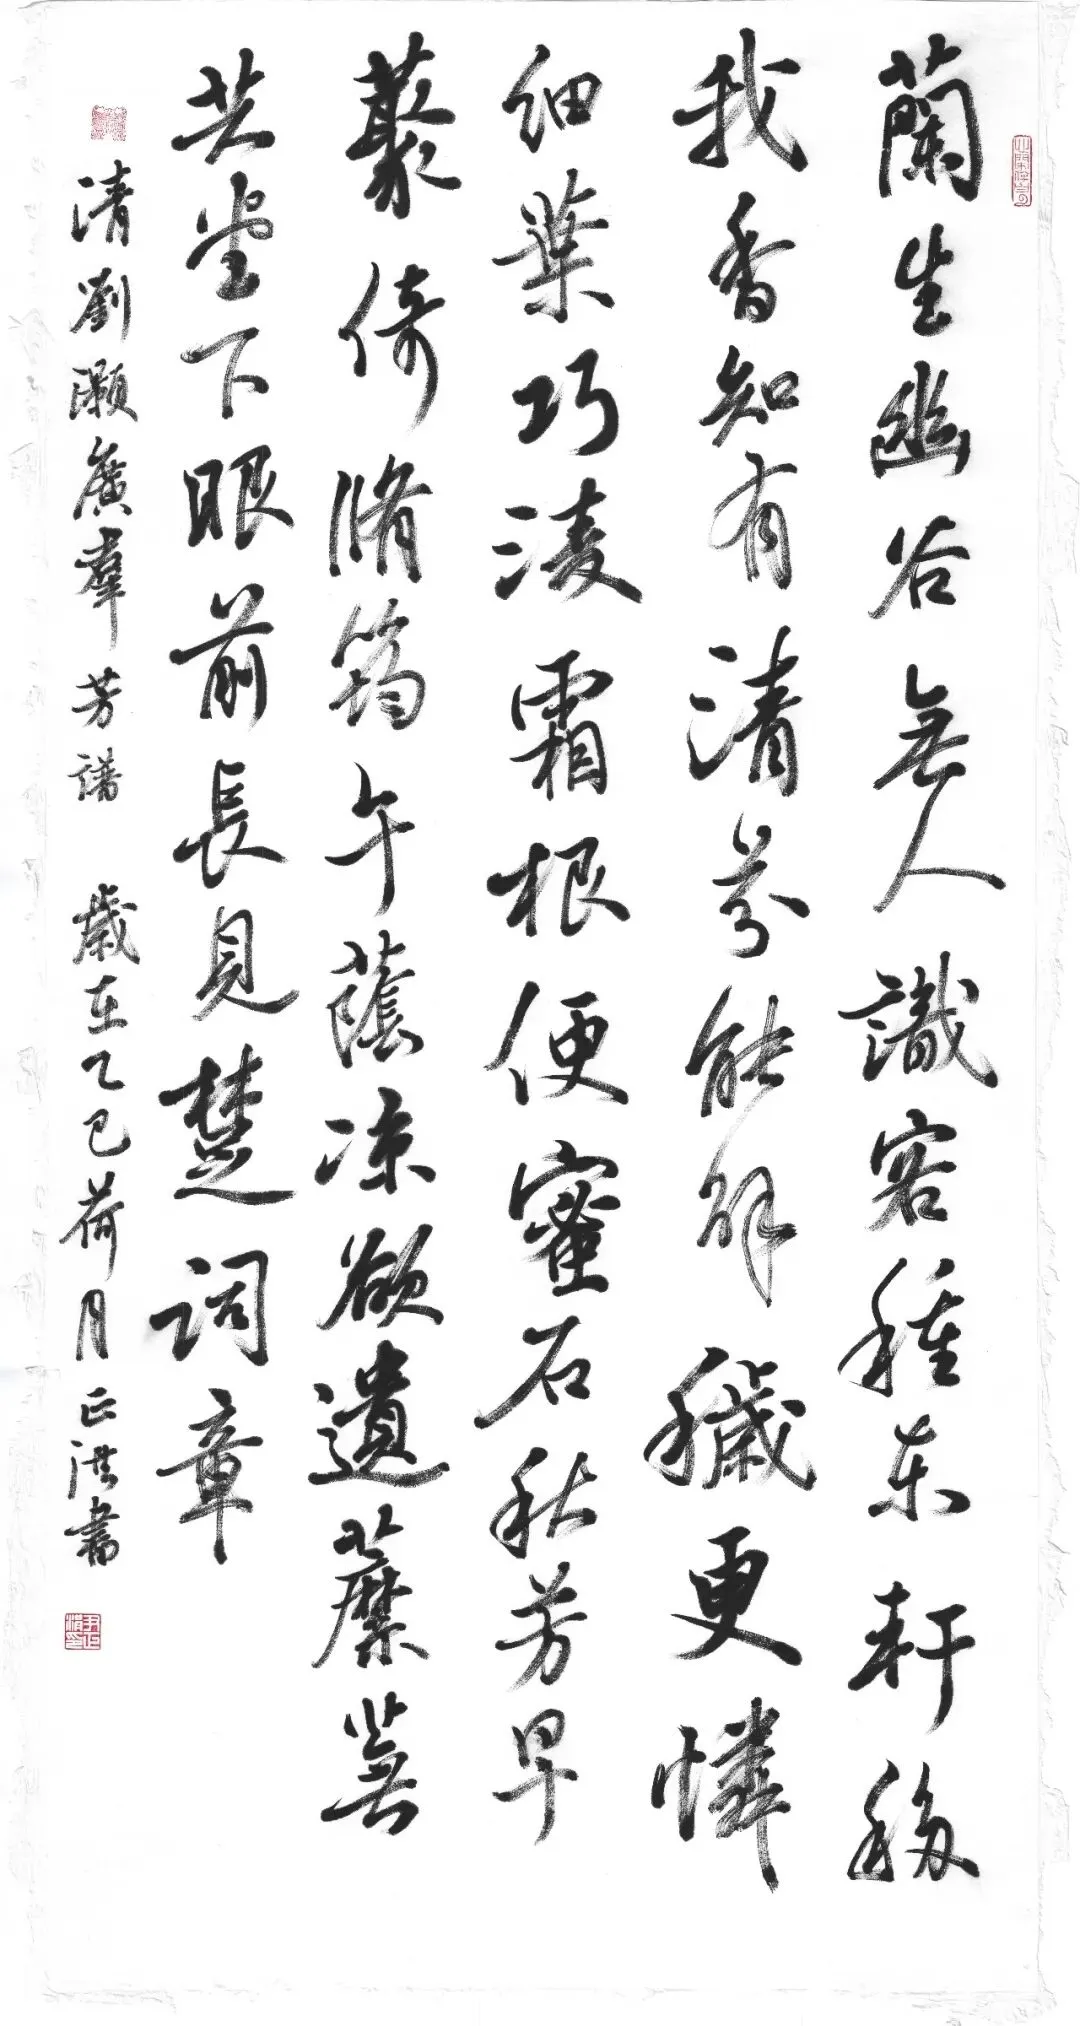 蘭生幽谷無人識客種東軒移
我香知有清芬能解穢更憐
細葉巧淩霜根便蜜石秋芳早
藂倚脩筠午蔭凉欲遺蘼蕪
共堂下眼前長見楚詞章
清劉灝廣羣芳譜 歲在乙巳荷月正洪書
尹正洪印